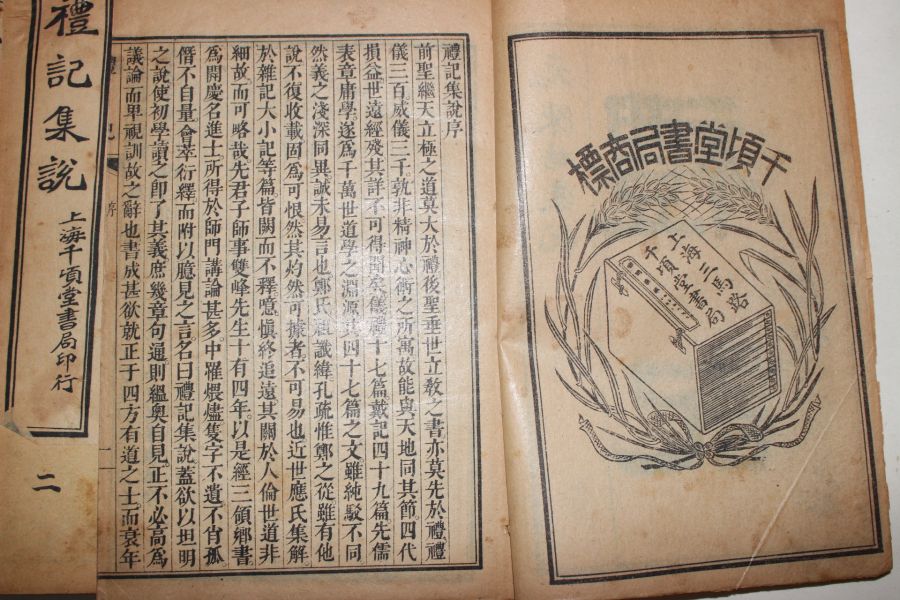 千頃堂書局商標
上海三馬路
千頃堂書局
禮記集說序
前聖繼天立極之道莫大於禮後聖垂世立教之書亦莫先於禮禮
儀三百威儀三千孰非精神心術之所寓故能與天地同其節四代
損益世遠經殘其詳不可得聞矣儀禮十七篇戴記四十九篇先儒
表章庸學遂為千萬世道學之淵源其四十七篇之文雖純駁不同
然義之淺深同異誠未易言也鄭氏祖讖緯孔疏惟鄭之從雖有他
說不復收載固為可恨然其灼然可據者不可易也近世應氏集解
於雜記大小記等篇皆闕而不釋噫慎終追遠其關於人倫世道非
細故而可略哉先君子師事雙峰先生十有四年以是經三領鄉書
為開慶名進士所得於師門講論甚多中罹煨燼隻字不遺不肖孤
僭不自量會萃衍繹而附以臆見之言名曰禮記集說蓋欲以坦明
之說使初學讀之即了其義庶幾章句通則縕奧自見正不必高為
議論而卑視訓故之辭也書成甚欲就正于四方有道之士而衰年
序
禮記集說
上海千頃堂書局印行
二